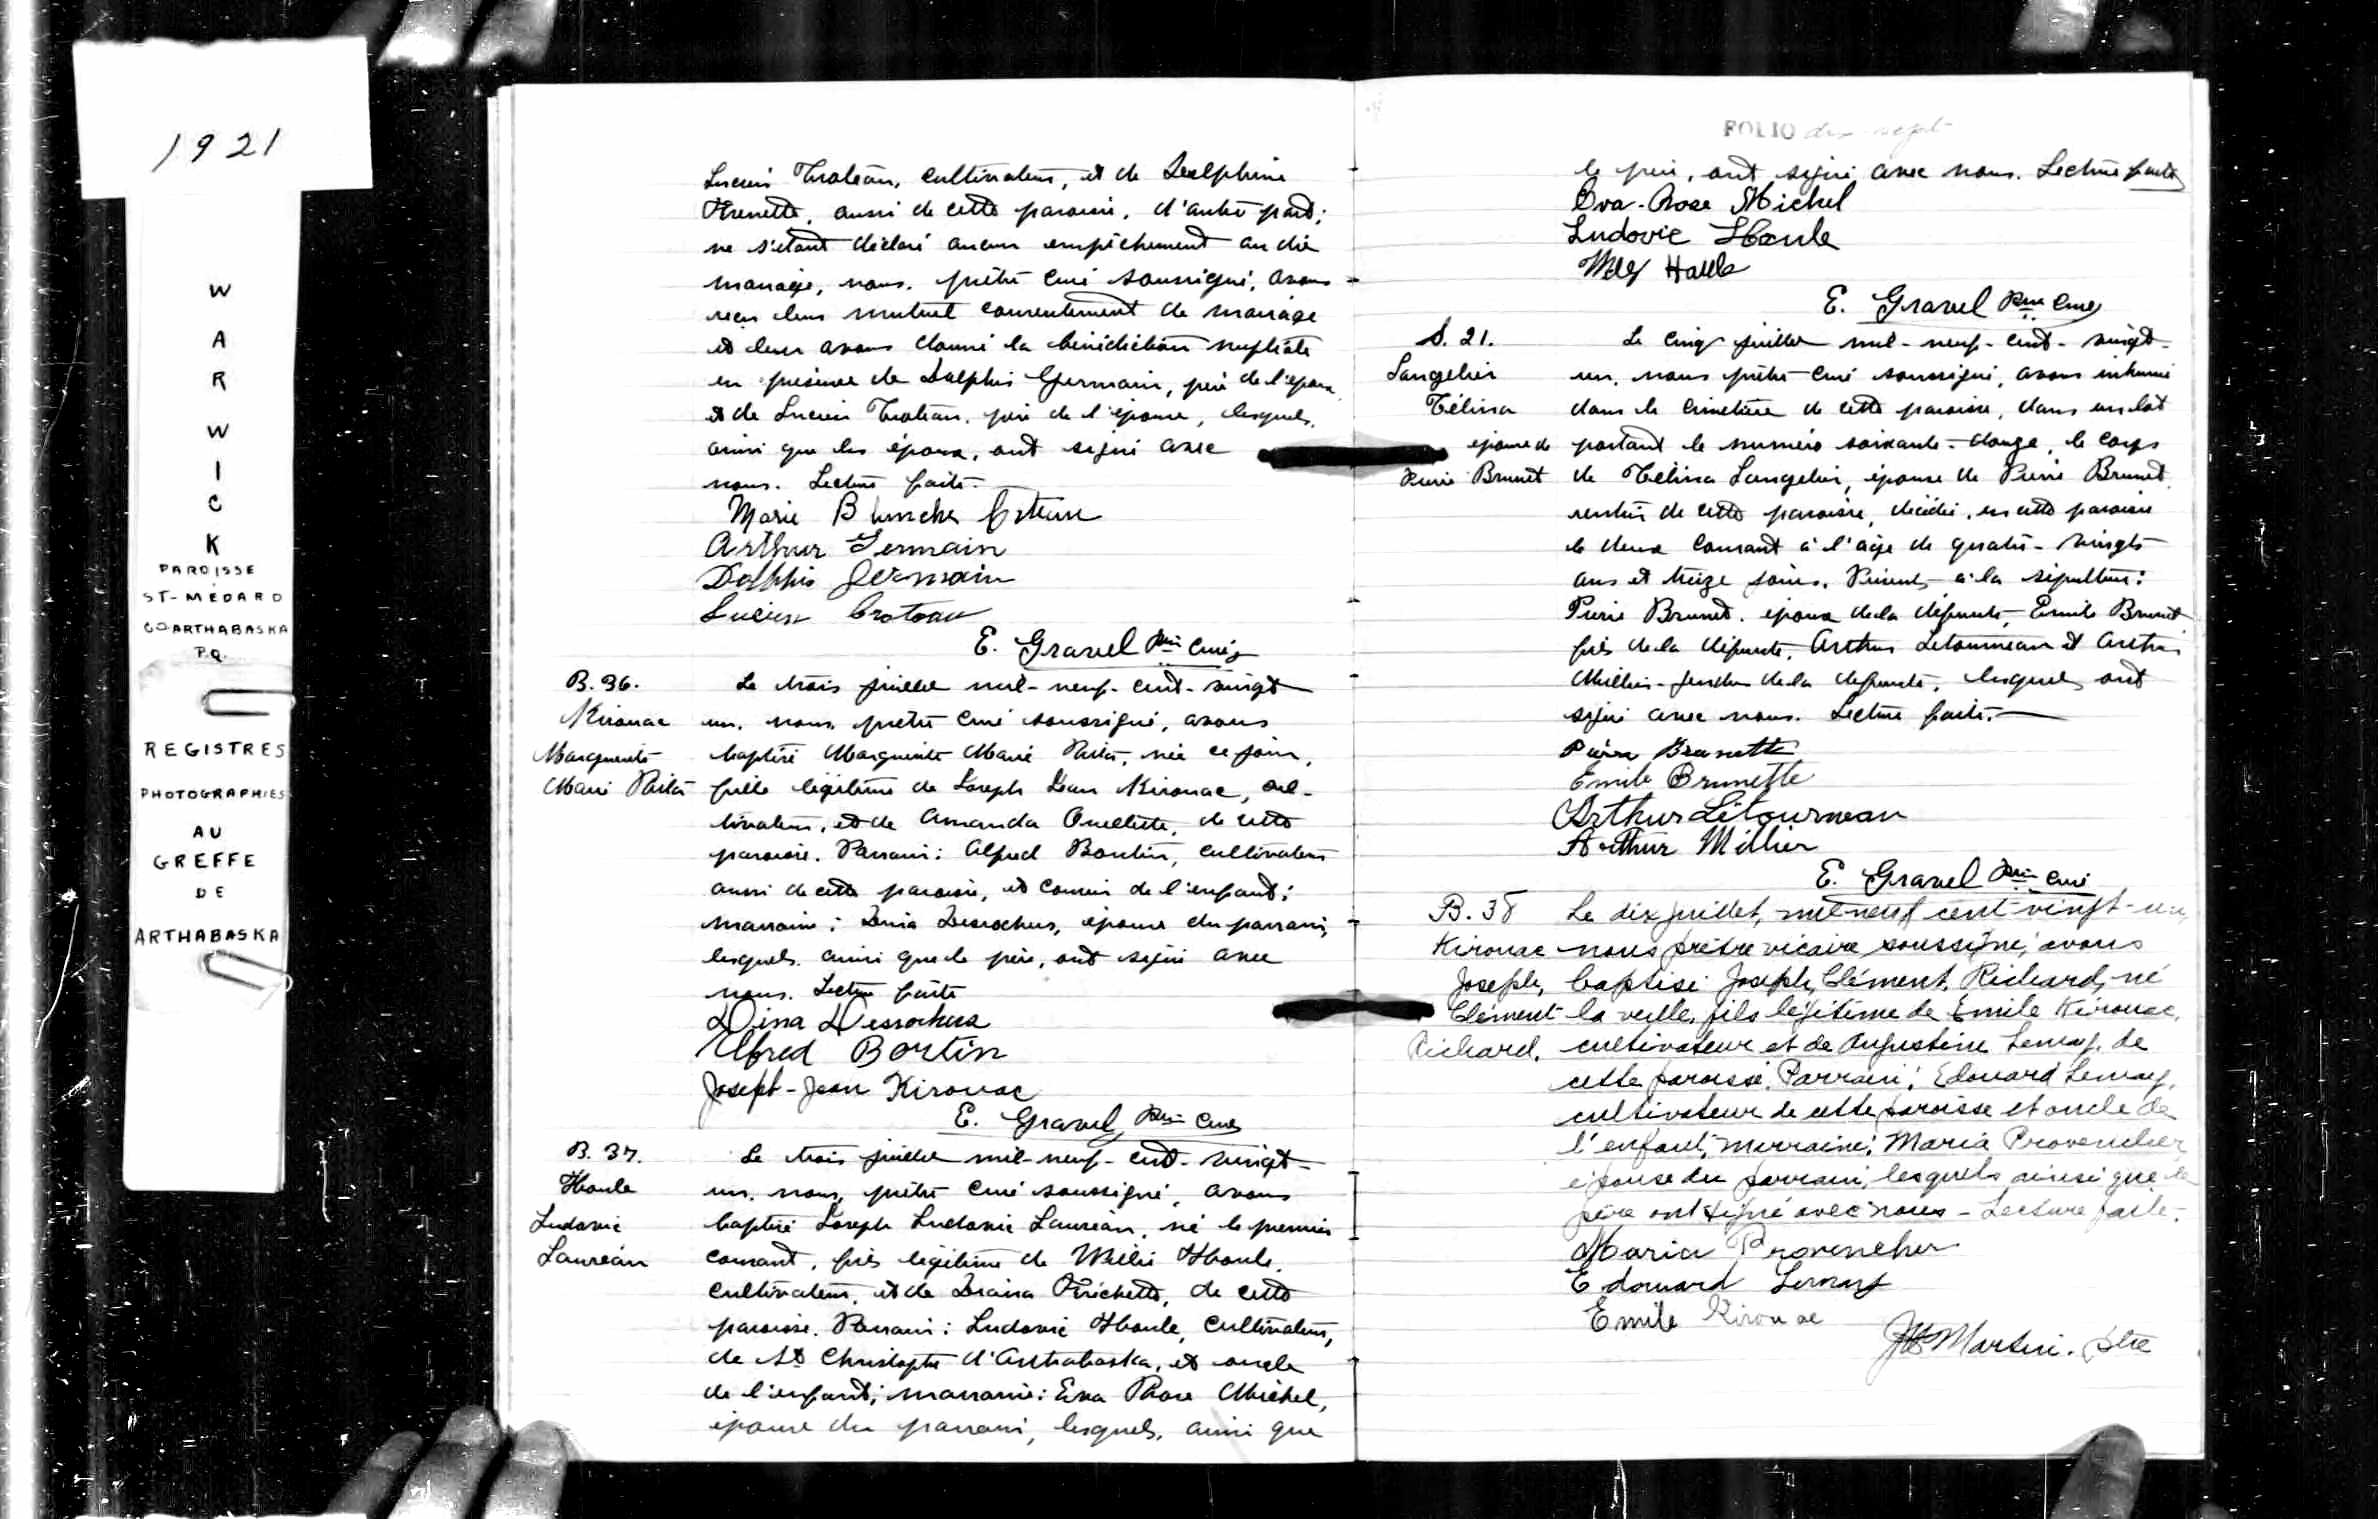 1921
W
A
R
W
I
C
K
PAROISSE
ST-MÉDARD
CO ARTHABASKA
P.Q.
REGISTRES
PHOTOGRAPHIES
AU
GREFFE
DE
ARTHABASKA
Lucien Croteau, cultivateur, et de Delphine
aussi de cette paroisse, d'autre part;
ne s'étant déclaré aucun empêchement au dit
mariage, nous, prêtre curé soussigné, avons
reçu leur mutuel consentement de mariage
et leur avons donné la bénédiction nuptiale
en présence de Dolphis Germain, père de l'époux
et de Lucien Croteau, père de l'épouse, lesquels,
ainsi que les époux, ont signé avec
nous. Lecture faite.
Marie Blanche Croteau
Arthur Germain
Dolphis Germain
Lucien Croteau
E. Gravel Ptre Curé
B. 36.
Kirouac
Marguerite
Marie Rita
Le trois juillet mil-neuf-cent-vingt
un, nous, prêtre curé soussigné, avons
baptisé Marguerite Marie Rita, née ce jour,
fille légitime de Joseph Jean Kirouac, cul-
tivateur, et de Amanda Ouellette, de cette
paroisse. Parrain: Alfred Boutin, cultivateur
aussi de cette paroisse, et cousin de l'enfant;
marraine: Dina Desrochers, épouse du parrain,
lesquels, ainsi que le père, ont signé avec
nous. Lecture faite
Dina Desrochers
Alfred Boutin
Joseph-Jean Kirouac
E. Gravel Ptre Curé
B. 37.
Houle
Ludovic
Lauréan
Le trois juillet mil-neuf-cent-vingt-
un, nous, prêtre curé soussigné, avons
baptisé Joseph Ludovic Lauréan, né le premier
courant, fils légitime de Willie Houle,
cultivateur, et de Diana Préchette, de cette
paroisse. Parrain: Ludovic Houle, cultivateur,
de St Christophe d'Arthabaska, et oncle
de l'enfant; marraine: Eva Rose Michel,
épouse du parrain, lesquels, ainsi que
FOLIO dix-sept
le père, ont signé avec nous. Lecture faite
Eva-Rose Michel
Ludovic Houle
Houle
E. Gravel Ptre Curé
S. 21.
Langelier
Télina
épouse de
Pierre Brunet
Le cinq juillet mil-neuf-cent-vingt-
un, nous prêtre curé soussigné, avons inhumé
dans le cimetière de cette paroisse, dans un lot
portant le numéro soixante-douze, le corps
de Télina Langelier, épouse de Pierre Brunet
rentier de cette paroisse, décédée, en cette paroisse
le deux courant à l'âge de quatre-vingts
ans et treize jours. Présents à la sépulture:
Pierre Brunet, époux de la défunte, Emile Brunet
fils de la défunte, Arthur Letourneau et Arthur
Millier-gendres de la défunte, lesquels ont
signé avec nous. Lecture faite.
Pierre Brunette
Emile Brunette
Arthur Létourneau
Arthur Millier
E. Gravel Ptre Curé
B. 38
Kirouac
Joseph,
Clément
Richard.
Le dix juillet, mil neuf cent vingt-un,
nous prêtre vicaire soussigné, avons
baptisé Joseph, Clément, Richard, né
la veille, fils légitime de Emile Kirouac,
cultivateur et de Augustine Lemay, de
cette paroisse. Parrain: Edouard Lemay,
cultivateur de cette paroisse et oncle de
l'enfant, marraine: Maria Provencher
épouse du parrain, lesquels ainsi que le
père ont signé avec nous - Lecture faite.
Maria Provencher
Edouard Lemay
Emile Kirouac
Martin. ptre